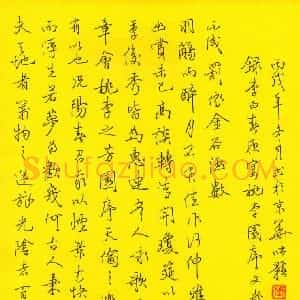 夫天地者萬物之逆旅光陰者百
而浮生若夢為歡幾何古人秉
有以也況陽春召我以煙景大塊
章會桃李之芳園序天倫之樂
季俊秀皆為惠連吾人詠歌
幽賞未已高談轉清開瓊筵以
羽觴而醉月不有佳作何伸雅
不成罰依金谷酒數
錄李白春夜宴桃李園序文
丙戌年冬月於京華